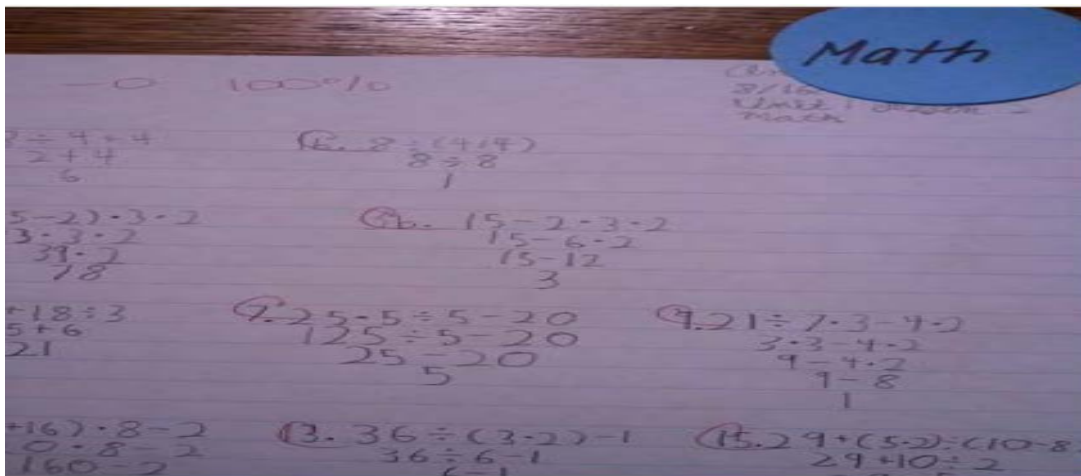 Math
-0 100%
8/16
Unit 1 Lesson -
Math
÷ 4 + 4
2 + 4
6
8 ÷ (4+4)
8 ÷ 8
1
5-2)·3·2
3·3·2
39·2
78
b. 15-2·3·2
15-6·2
15-12
3
+18÷3
5+6
21
7. 25·5÷5-20
125÷5-20
25-20
5
9. 21÷7·3-4·2
3·3-4·2
9-4·2
9-8
1
+16)·8-2
0·8-2
160-2
13. 36÷(3·2)-1
36÷6-1
6-1
15. 29+(5·2)÷(10-8
29+10÷2